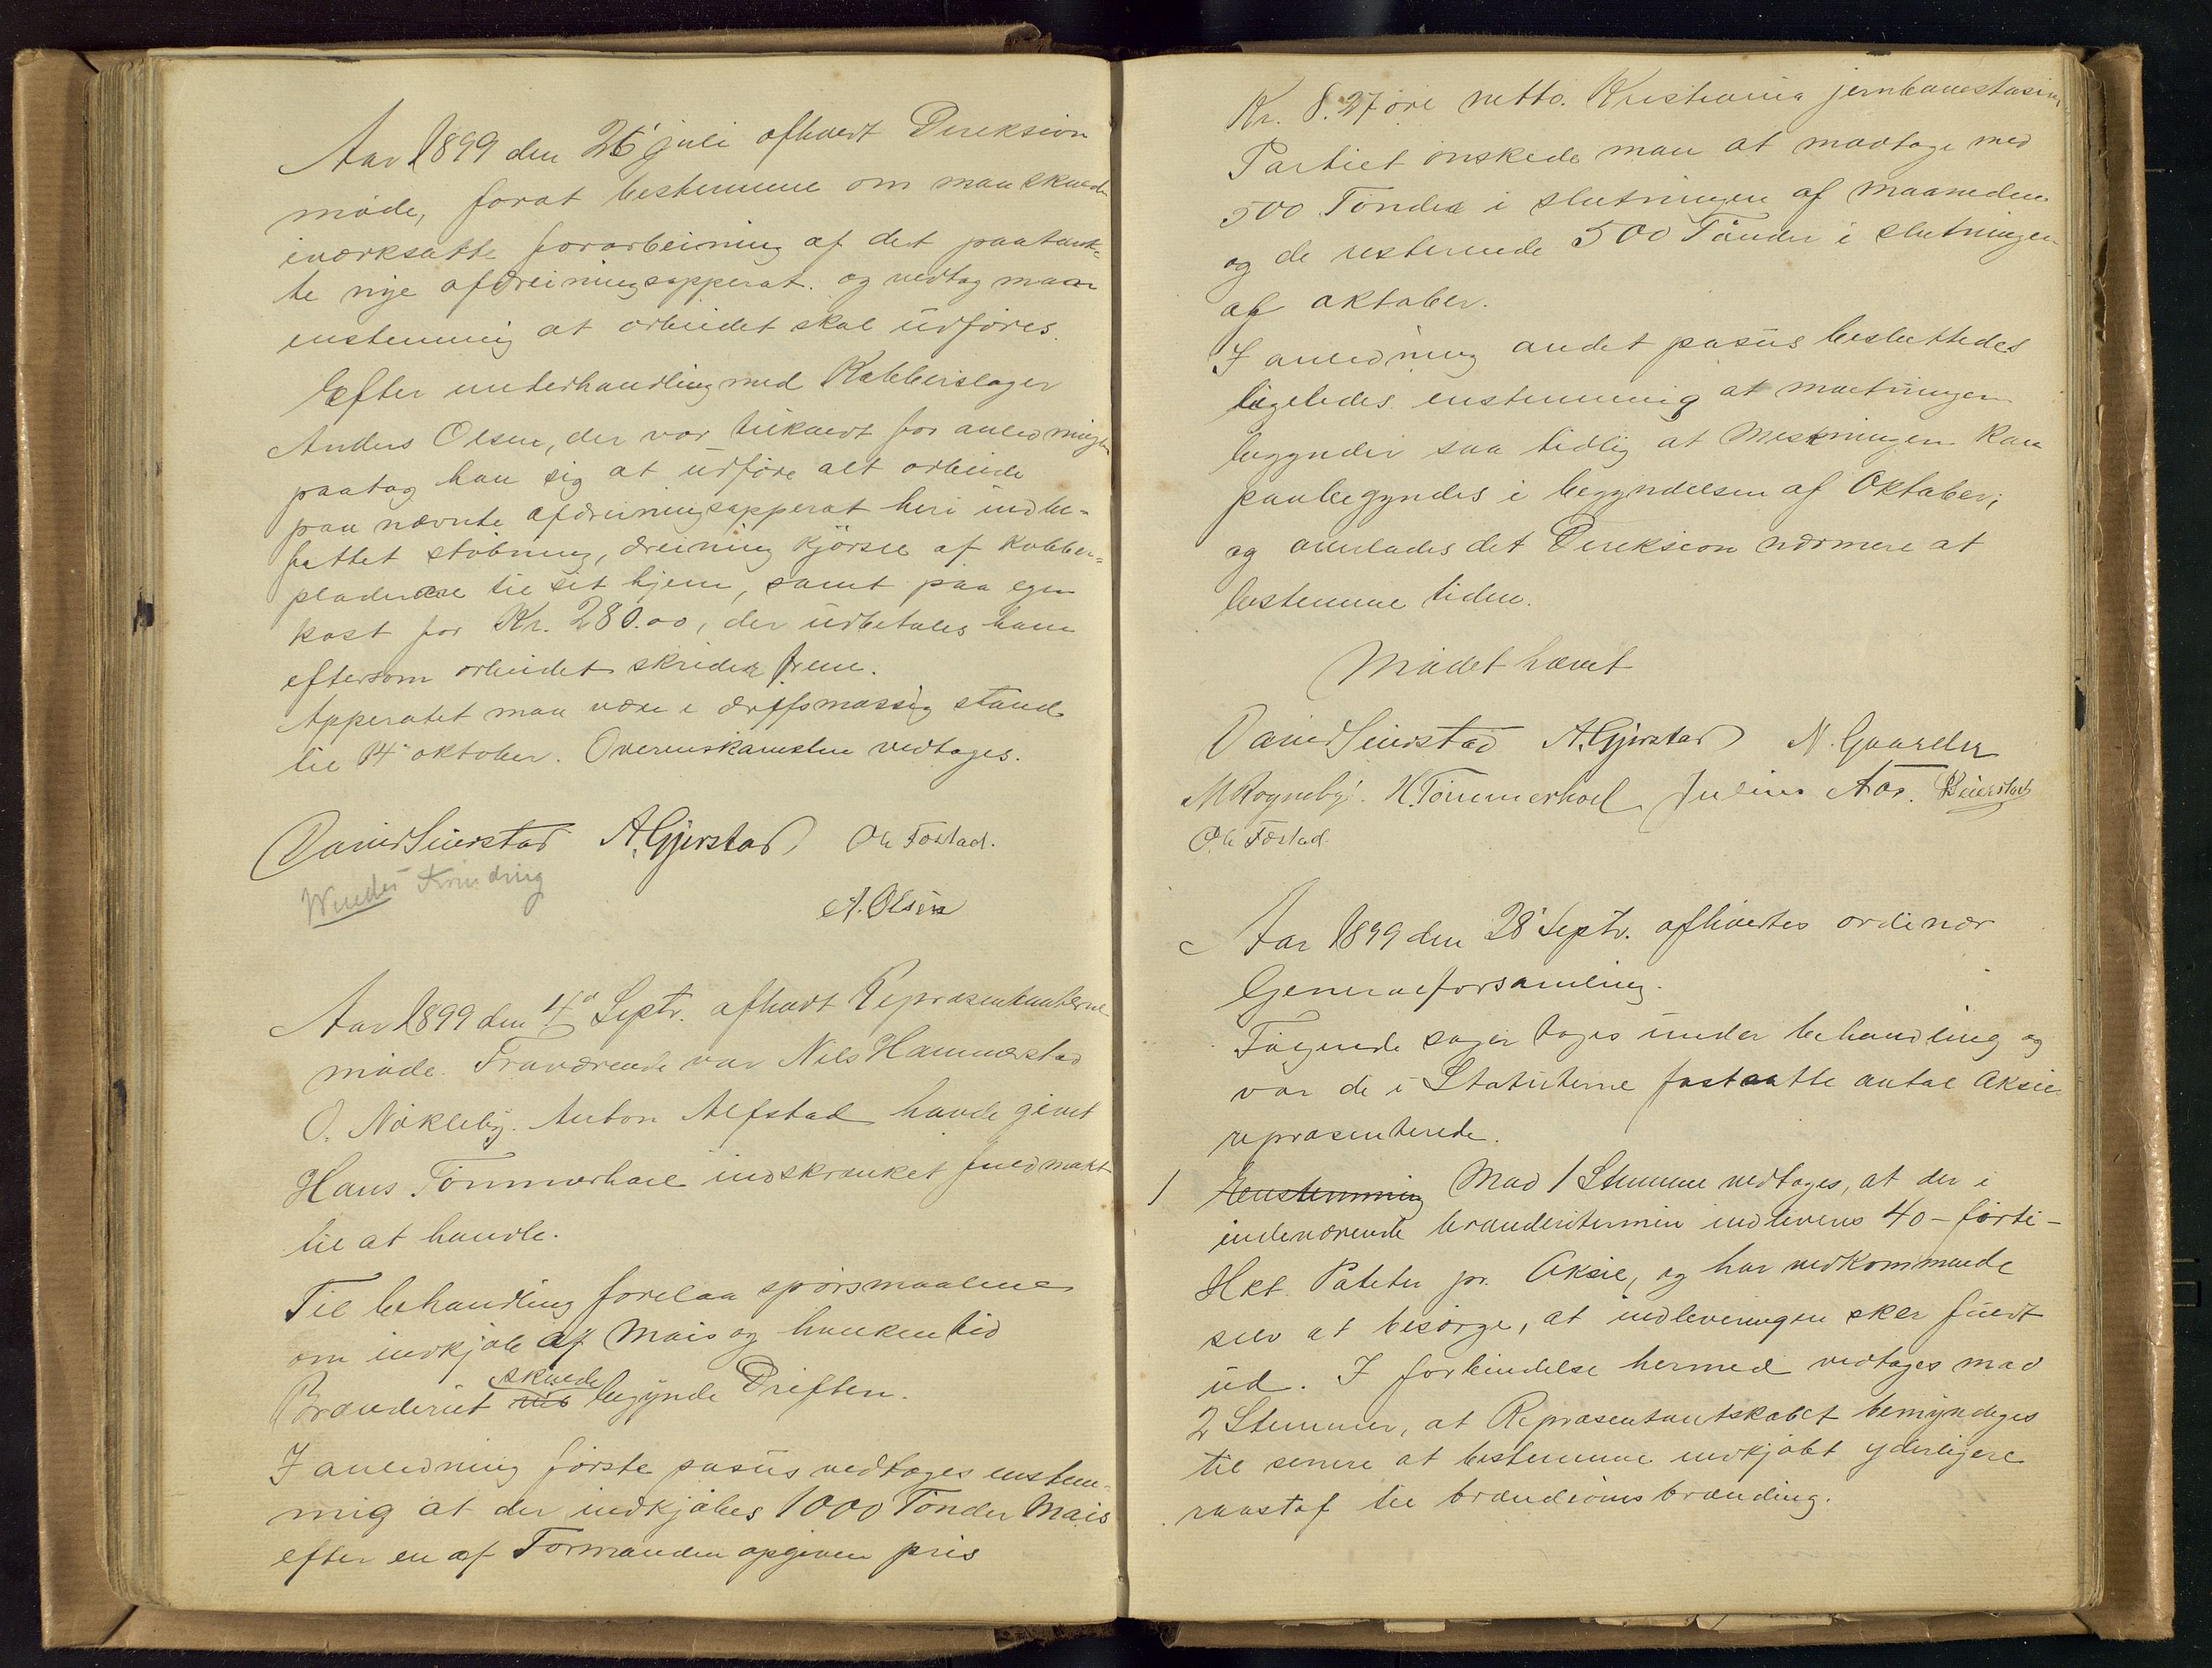 Aar 1899 den 26' juli afholdt Direksion
möde, forat bestemme om man skulde
iværksætte forarbeining af det paatænk=
te nye afdreiningsapperat. og vedtog man
enstemmig at arbeidet skal üdföres.
Efter underhandling med Kobberslager
Anders Olsen, der var tilkaldt for anledningen
paatog han sig at üdföre alt arbeide
paa nævnte afdreiningsapperat heri indbe=
fattet stöbning, dreining kjörsel af kobber=
pladerne til sit hjem, samt paa egen
kost for Kr. 280.00, der üdbetales ham
eftersom arbeidet skrider frem.
Apperatet maa være i driftsmæssig stand
til 14' oktober. Overenskomsten vedtages.
David Seierstad A. Gjerstad Ole Fostad.
A. Olsen
Aar 1899 den 4' Septr. afholdt Repræsentanterne
möde. Fraværende var Nils Hammerstad
O. Nökleby. Anton Alfstad havde givet
Hans Tömmerhoel indskrænket fuldmakt
til at handle.
Til behandling forelaa spörsmaalene
om indkjöb af Mais og hvilken tid
skulde
Brænderiet begynde Driften.
I anledning förste pasüs vedtages enstem=
mig at der indkjöbes 1000 Tönder Mais
efter en af Formanden opgiven pris
Kr. 8.27 öre netto. Kristiania jernbanestasion.
Partiet önskede man at modtage med
500 Tönder i slutningen af maaneden
og de resterende 500 Tönder i slutningen
af oktober.
I anledning andet pasüs besluttedes
ligeledes enstemmig at maltningen
begynder saa tidlig at Meskningen kan
paabegyndes i begyndelsen af Oktober;
og overlades det Direksion nærmere at
bestemme tiden.
Mödet hævet
David Seierstad A. Gjerstad N. Gaarder
M Rognebÿ. H. Tömmerhoel Julius Aas. Beierstad
Ole Fostad.
Aar 1899 den 28' Septr. afholdtes ordinær
Generalforsamling.
Fölgende sager toges ünder behandling og
var de i Statüterne fastsatte antal Aksier
repræsenterede.
1 Enstemmig Mod 1 Stemme vedtages, at der i
indeværende brænderitermin indleveres 40 - förti -
Hkt. Poteter pr. Aksie, og har vedkommende
selv at besörge, at indleveringen sker füldt
üd. I forbindelse hermed vedtages mod
2 Stemmer, at Repræsentantskabet bemyndiges
til senere at bestemme indkjöbt yderligere
raastof til brændeviins brænding.